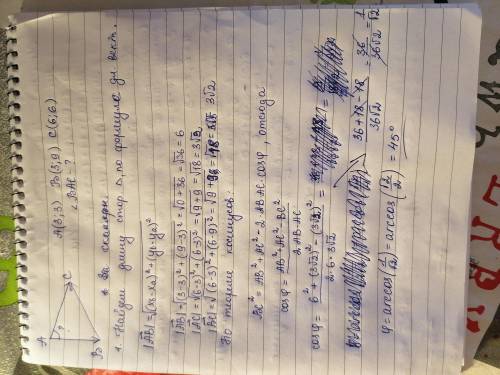 A
C
B
?
A(3;3) B(3;9) C(6;6)
∠BAC ?
1. Найдем длину стор по формуле дл. вект.
|AB| = √(x₂-x₁)²+(y₂-y₁)²
|AB| = √(3-3)²+(9-3)² = √0+36 = √36 = 6
|AC| = √(6-3)²+(6-3)² = √9+9 = √18 = 3√2
= √(6-3)²+(6-9)² = √9+9 = √18 = 3√2
По теореме косинусов:
= AB²+AC²-2·AB·AC·cosφ, отсюда
cosφ = (AB²+AC²-BC²)/(2·AB·AC)
cosφ = (6²+(3√2)²-(3√2)²)/(2·6·3√2) =
(36+18-18)/(36√2) = 36/(36√2) = 1/√2
φ = arccos(1/√2) = arccos(√2/2) = 45°